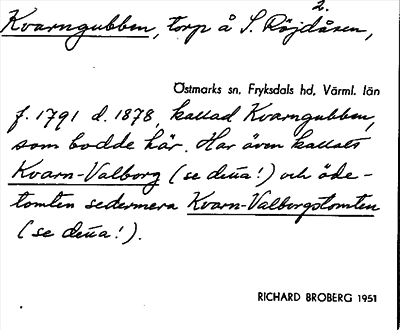 2.
Kvarngubben, torp å S. Röjdåsen,
Östmarks sn. Fryksdals hd. Värml. län
f. 1791 d. 1878, kallad Kvarngubben,
som bodde här. Har även kallats
Kvarn-Valborg (se detta!) och öde-
tomten sedermera Kvarn-Valborgstomten
(se detta!).
RICHARD BROBERG 1951